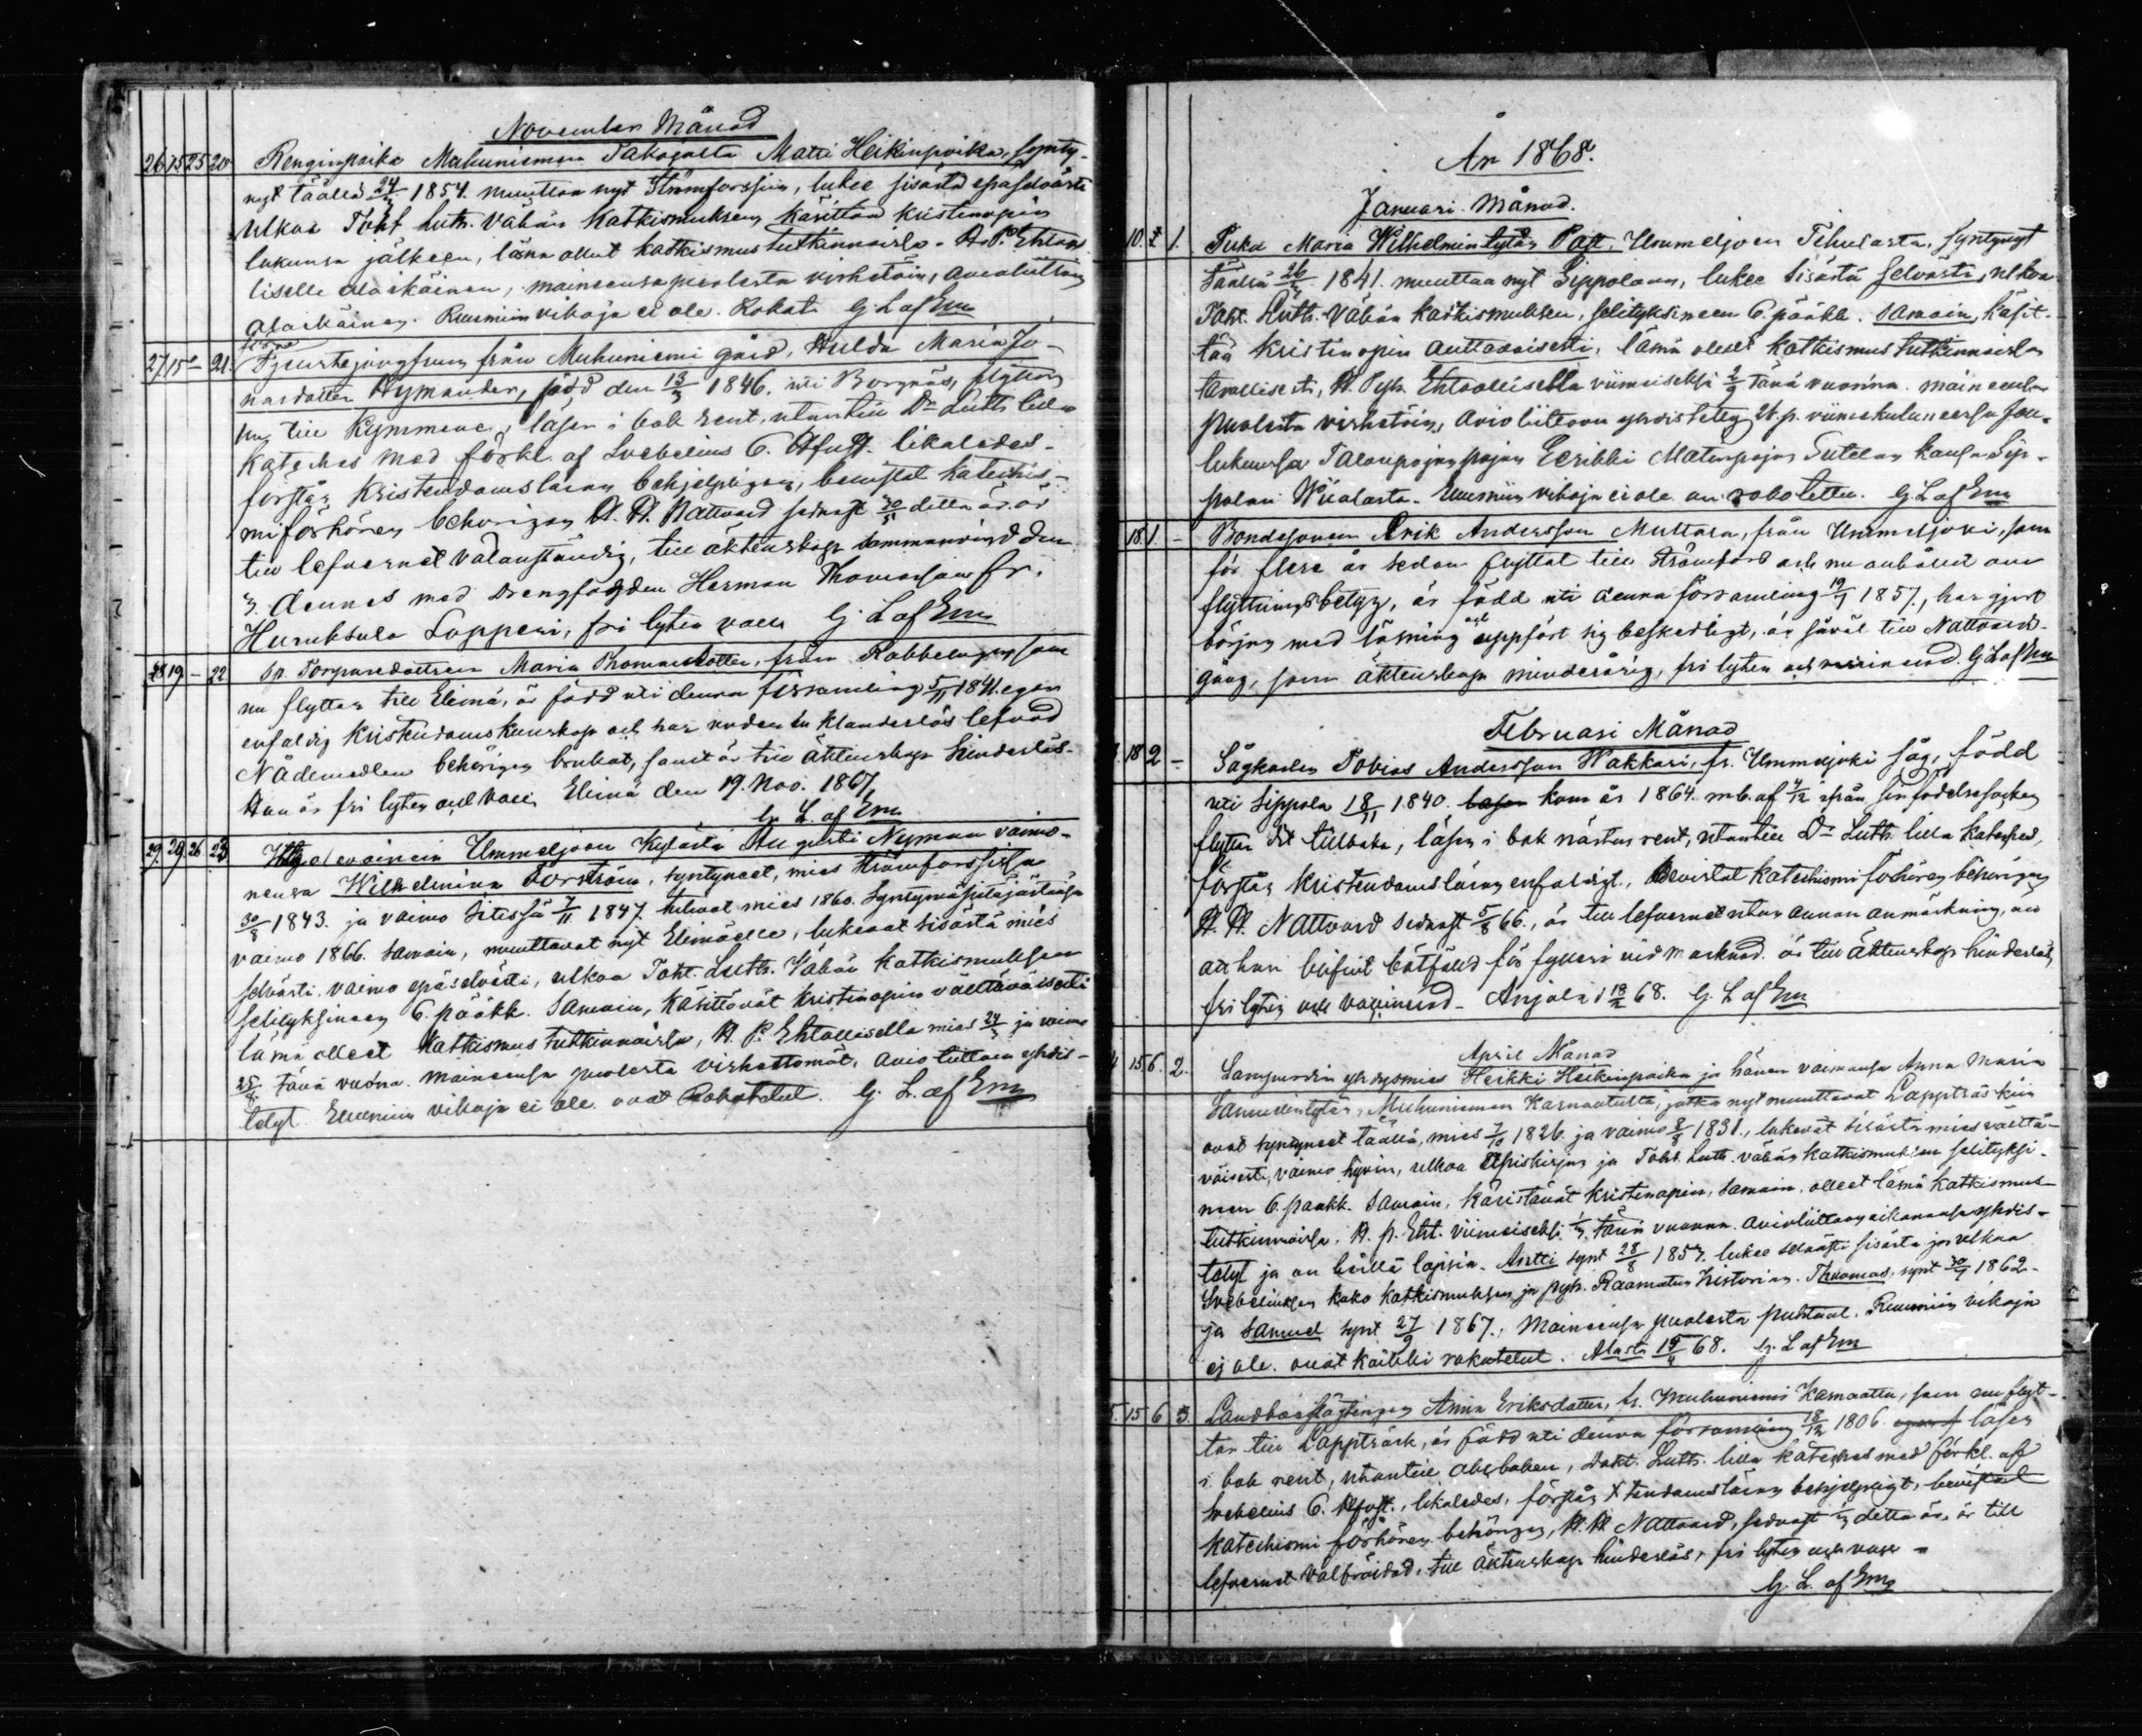 November Månad
26 15 25 20 Renginpoika Muhuniemen Matti Heikinpoika, synty-
nyt täällä 24/ 1854. muuttaa nyt Strömforssiin, lukee sisästä epäselvästi
ulkoa Toht Luth. Vähän Katkismuksen, käsittää kristinopin
lukunsa jälkeen, läsnä ollut katkismus tutkinnoisa. H. P. Ehtool
liselle alaikäinen, maineensa puolesta virhetöin, avioliittoon
alaikäinen. Ruumiin vikoja ei ole. Rokot. G. L. af Em
27 15 - 21. Tjenstejungfrun från Muhuniemi gård, Hulda Maria Jo-
nasdotter Nymander, född den 13/3 1846. uti Borgnäs, flyttar
nu till Kymmene, läser i bok rent, utantill Dr Luth lilla
Kateches med förkl. af Svebelius 6. H.styck. likaledes.
förstår Kristendomsläran behjelpligen, bevistat Katechis-
miförhören behörigen H. H. Nattvard sednast 30/5 detta år. är
till lefvernet välanständig, till äktenskap sammanvigd den
3. dennes med Drengfogden Herman Thomasson fr.
Huruksela Lopperi, fri lyten vacc G. L. af Em
28 19 - 22 Sp. Torparedottren Maria Thomasdotter, från Rabbelugn som
nu flyttar till Elimä, är född uti denna församling 5/11 1841. egen
enfaldig kristendomskunskap och har under en klanderlös lefnad
Nådemedlen behörigen brukat, samt är till äktenskap hinderlös.
Hon är fri lyten och vacc. Elimä den 19. Nov. 1867.
G. L. af Em
29. 29 26 23 Ummeljoen Kylästä Augusti Nyman vaimo-
nensa Wilhelmina, syntyneet, mies Strömforssissa
30/8 1843. ja vaimo Sitissä 7/11 1847. tulivat mies 1860. Syntymäpitäjästänsä
vaimo 1866. samoin, muuttavat nyt Elimäelle, lukevat sisästä mies
selvästi. vaimo epäselvästi, ulkoa Toht. Luth. Vähän Katkismuksen
selityksineen 6. pääkk. Samoin, käsittävät kristinopin välttäväisesti
läsnä olleet Katkismus tutkinnoisa, H. P. Ehtoollisella mies 24/ ja vaimo
25/8 tänä vuonna. maineensa puolesta virhettömät, avioliittoon yhdis-
tetyt Ruumiin vikoja ei ole. ovat Rokotetut. G. L. af Em
År 1868.
Januari Månad.
10. 1. Piika Maria Wilhelmintytär Post, Ummeljoen Tihulasta, syntynyt
täällä 26/ 1841. muuttaa nyt Sippolaan, lukee sisästä selvästi, ulkoa
Toht. Luth. Vähän katkismuksen, selityksineen 6. pääkk. samoin, käsit-
tää kristinopin auttavaisesti, läsnä ollut katkismus tutkinnoisa
tavallisesti, H. Pyh. Ehtoollisella viimeiseksi 2/9 tänä vuonna. maineensa
puolesta virhetöin, avioliittoon yhdistetty 26 p. viimekuluneessa jou-
lukuussa Talonpojan pojan Eerikki Matinpojan Sutelan kansa Sip-
polan Wiialasta. Ruumiin vikoja ei ole. on rokotettu. G. L. af Em
18. 1 - Bondesonen Erik Andersson Muttara, från Ummeljoki, som
för flere år sedan flyttat till Strömfors och nu anhållit om
flyttningsbetyg, är född uti denna församling 19/7 1857, har gjort
början med läsning och uppfört sig beskedligt, är såväl till Nattvards-
gång, som äktenskap minderårig, fri lyten och vaccinerad. G. L. af Em
Februari Månad
18 2 - Sågkarlen Tobias Andersson Wakkari, fr. Ummeljoki såg, född
uti Sippola 18/11 1840. kom år 1864. m. b. af 4/12 från sin födelsesocken
flyttar dit tillbaka, läser i bok nästan rent, utantill Dr Luth. lilla Kateches,
förstår Kristendomsläran enfaldigt, Bevistat Katechismi Förhören behörigen
H. H. Nattvard sednast 5/8 66., är till lefvernet utan annan anmärkning, än
att han blifvit bötfälld för fylleri vid marknad. är till äktenskap hinderlös,
fri lyten och vaccinerad - Anjala d 18/2 68. G. L. af Em
April Månad
4 15 6. 2. Lampuodin yhdysmies Heikki Heikinpoika ja hänen vaimonsa Anna Maria
Samuelintytär, Muhuniemen Karnaatulta, jotka nyt muuttavat Lappträskiin
ovat syntyneet täällä, mies 7/10 1826. ja vaimo 8/8 1831., lukevat sisästä mies välttä-
väisesti, vaimo hyvin, ulkoa Apiskirjan ja Toht. Luth. vähän katkismuksen selityksi-
neen 6. pääkk. samoin, käsittävät kristinopin, samoin. olleet läsnä katkismus-
tutkinnoisa. H. p. Eht. viimeiseksi 1/ tänä vuonna. Avioliittoon aikanansa yhdis-
tetyt ja on heillä lapsia. Antti synt 28/8 1857. lukee selvästi sisästä ja ulkoa
Svebeliuksen koko katkismuksen ja pyh. Raamatun historian. Thuomas, synt 30/7 1862.
ja Samuel synt 27/9 1867. Maineensa puolesta puhtaat. Ruumiin vikoja
ei ole. ovat kaikki rokotetut. 15/4 68. G. L. af Em
5. 15 6 3. Anna Eriksdotter, fr. Muhuniemi Karnaattu, som nu flyt-
tar till Lappträsk, är född uti denna församling 18/12 1806. läser
i bok rent, utantill abcboken, Dokt. Luth. lilla kateches med förkl. af
Svebelius 6. H.styck., likaledes, förstår Xtendomsläran behjelpligt, bevistat
Katechismi förhören behörigen, H. H. Nattvard, sednast 1/ detta år. är till
lefvernet välfräjdad, till äktenskap hinderlös, fri lyten och vacc -
G. L. af Em